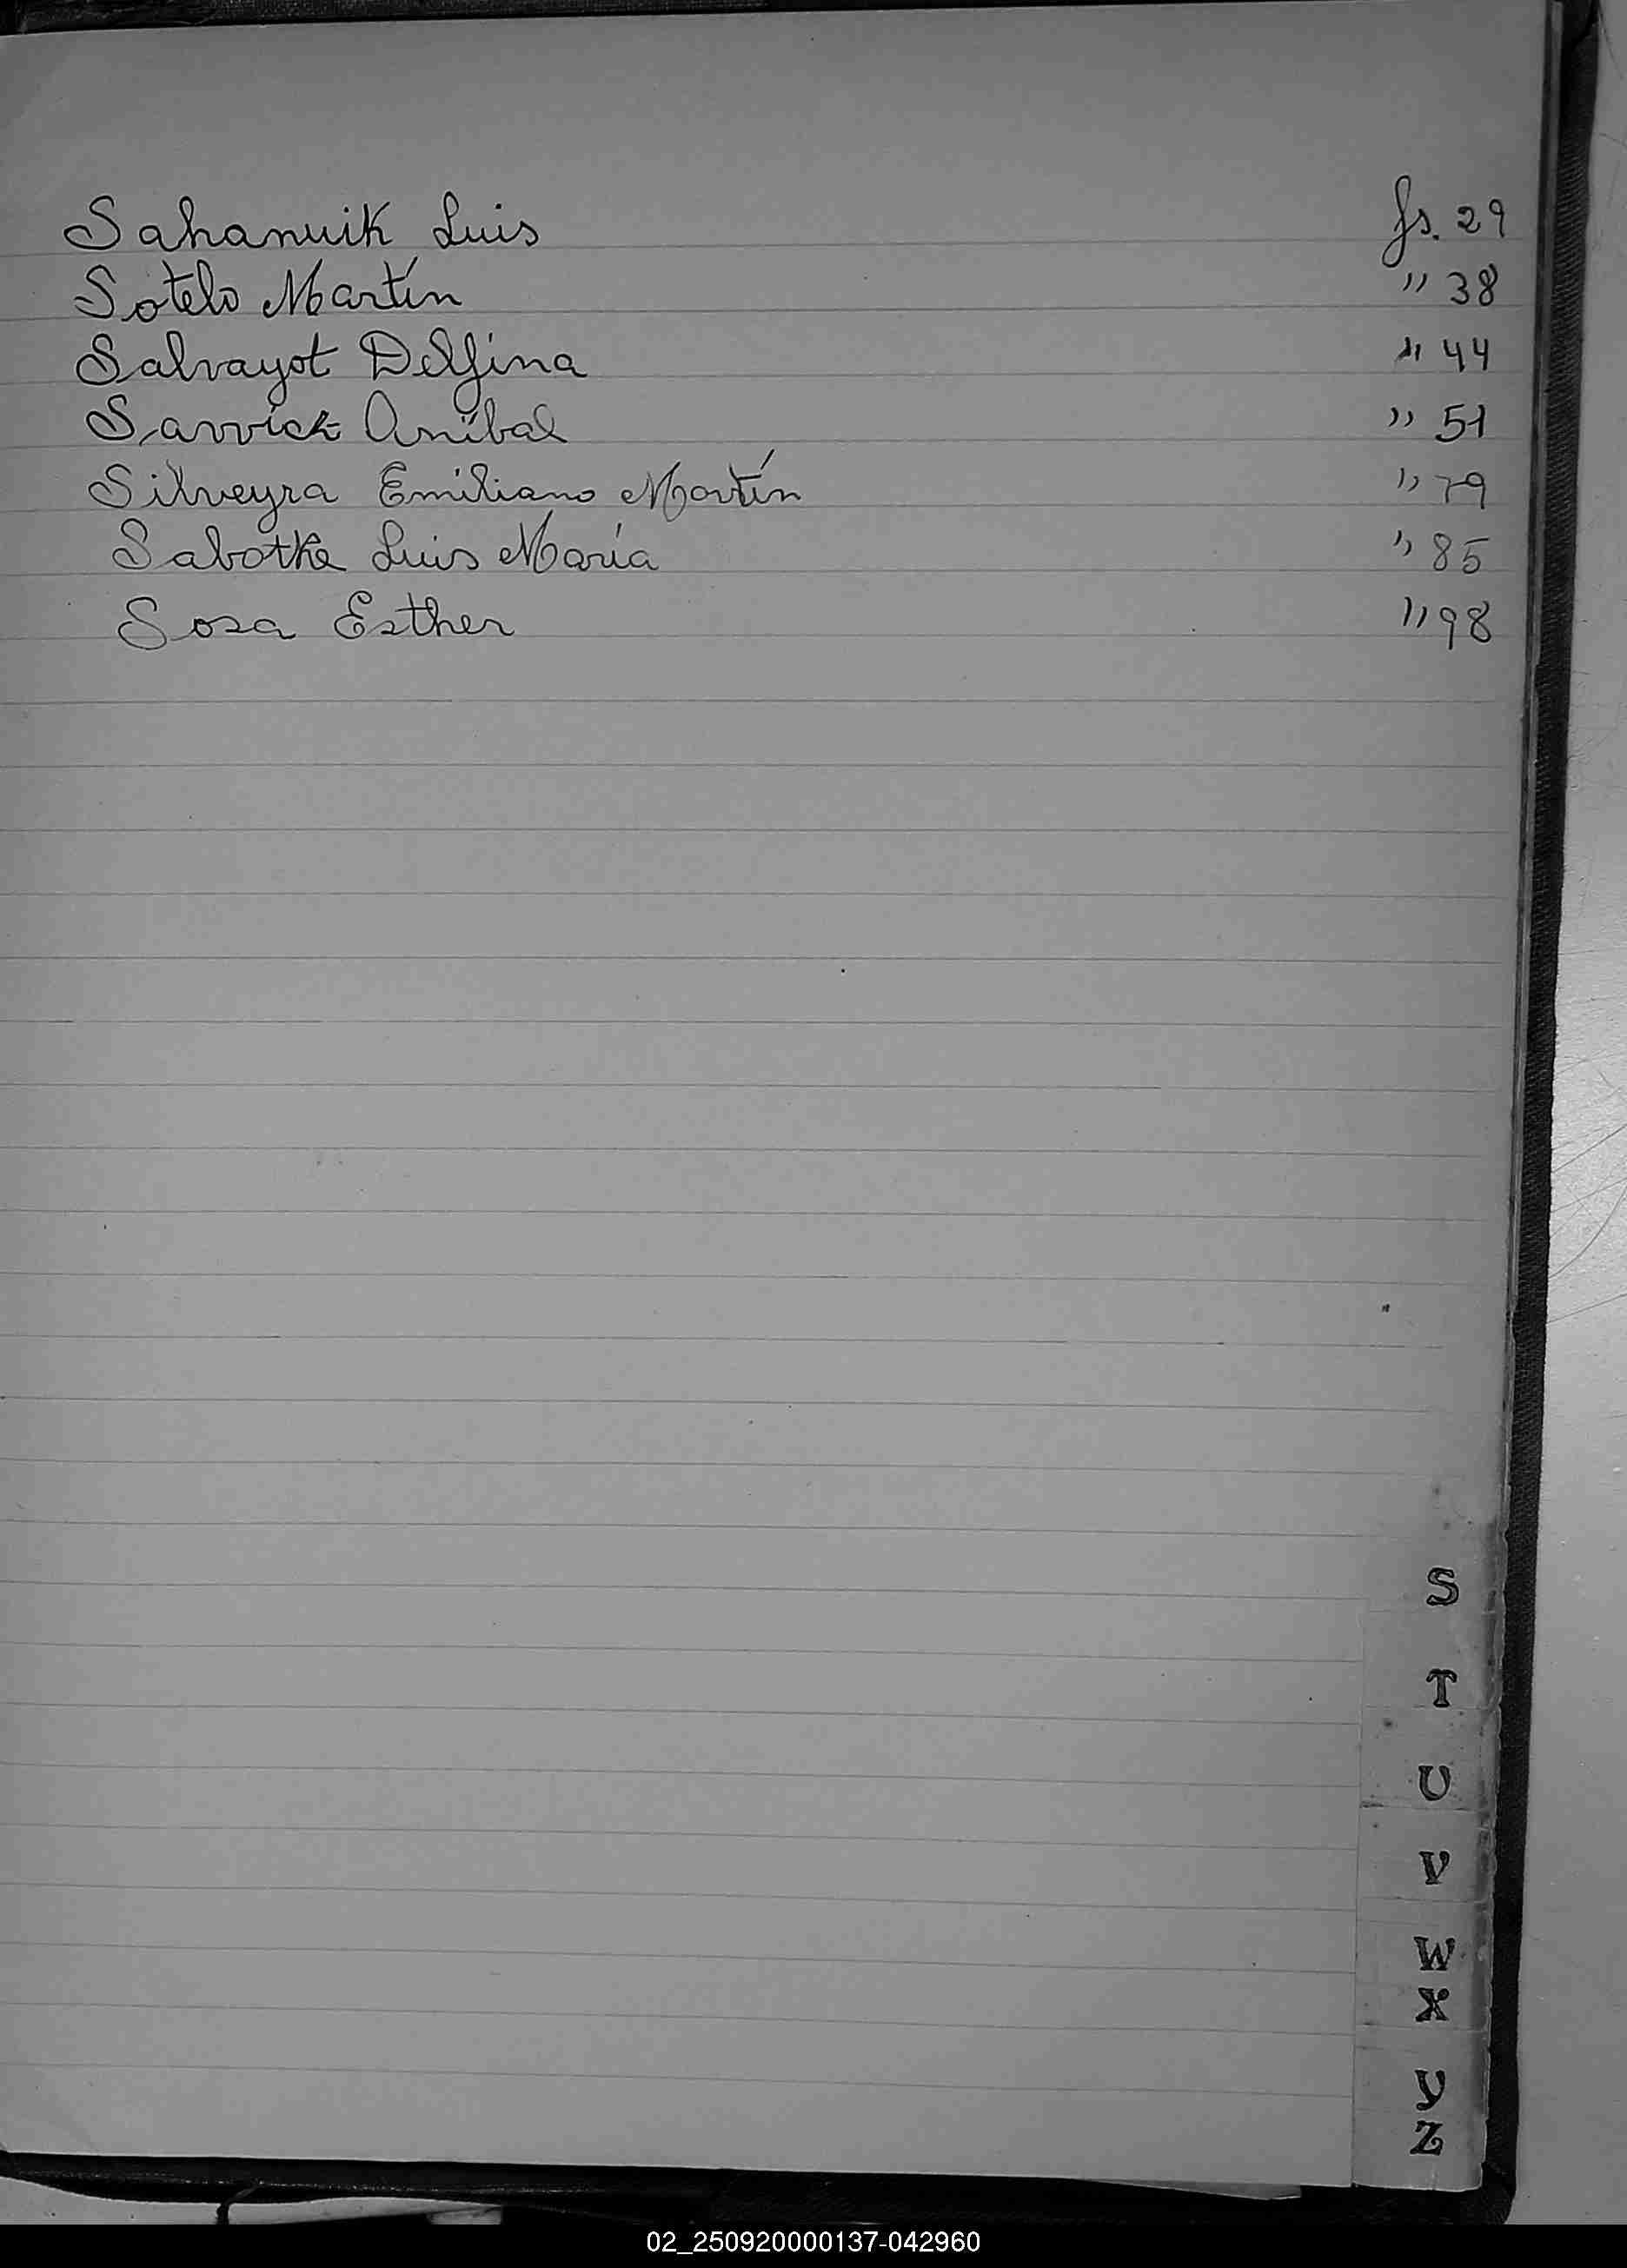 Sahanuik Luis fs. 29
Sotelo Martín " 38
Salvayot Delfina " 44
Savvick Aníbal " 51
Silveyra Emiliano Martín " 79
Sabotke Luis María " 85
Sosa Esther " 98
S
T
U
V
W
X
Y
Z
02_250920000137-042960